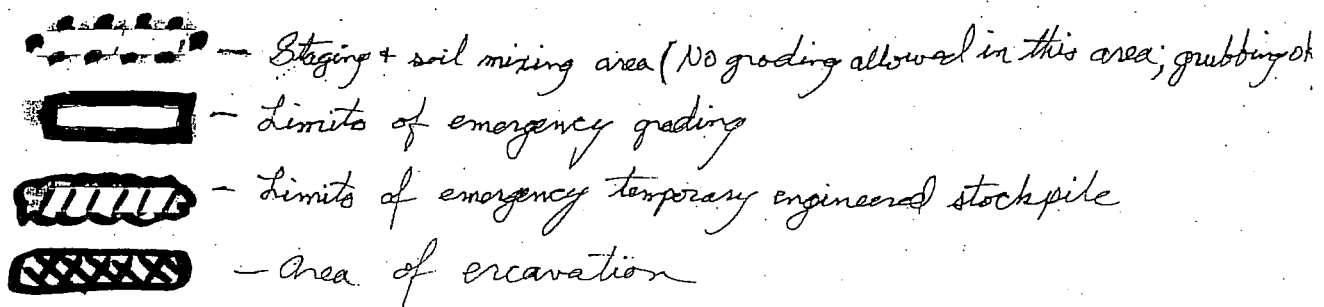 — Staging + soil mixing area (No grading allowed in this area; grubbing ok
— Limits of emergency grading
— Limits of emergency temporary engineered stockpile
— Area of excavation